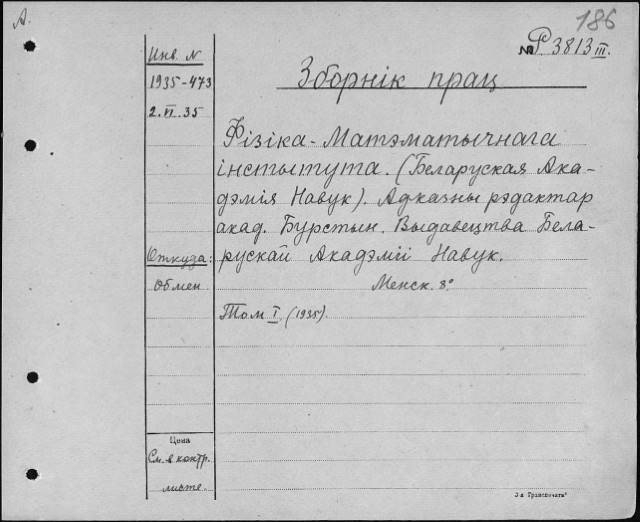 А.
186
№ Р. 3813 III.
Инв. N
1935-473
2.VI.35
Зборнік прац
Фізіка-Матэматычнага
інстытута. (Беларуская Ака-
дэмія Навук). Адказны рэдактар
акад. Бурстын. Выдавецтва Бела-
рускай Акадэміі Навук.
Менск. 8°
Том I. (1935).
Откуда:
Обмен
Цена
См. в контр.
листе.
3-я Транспечать"